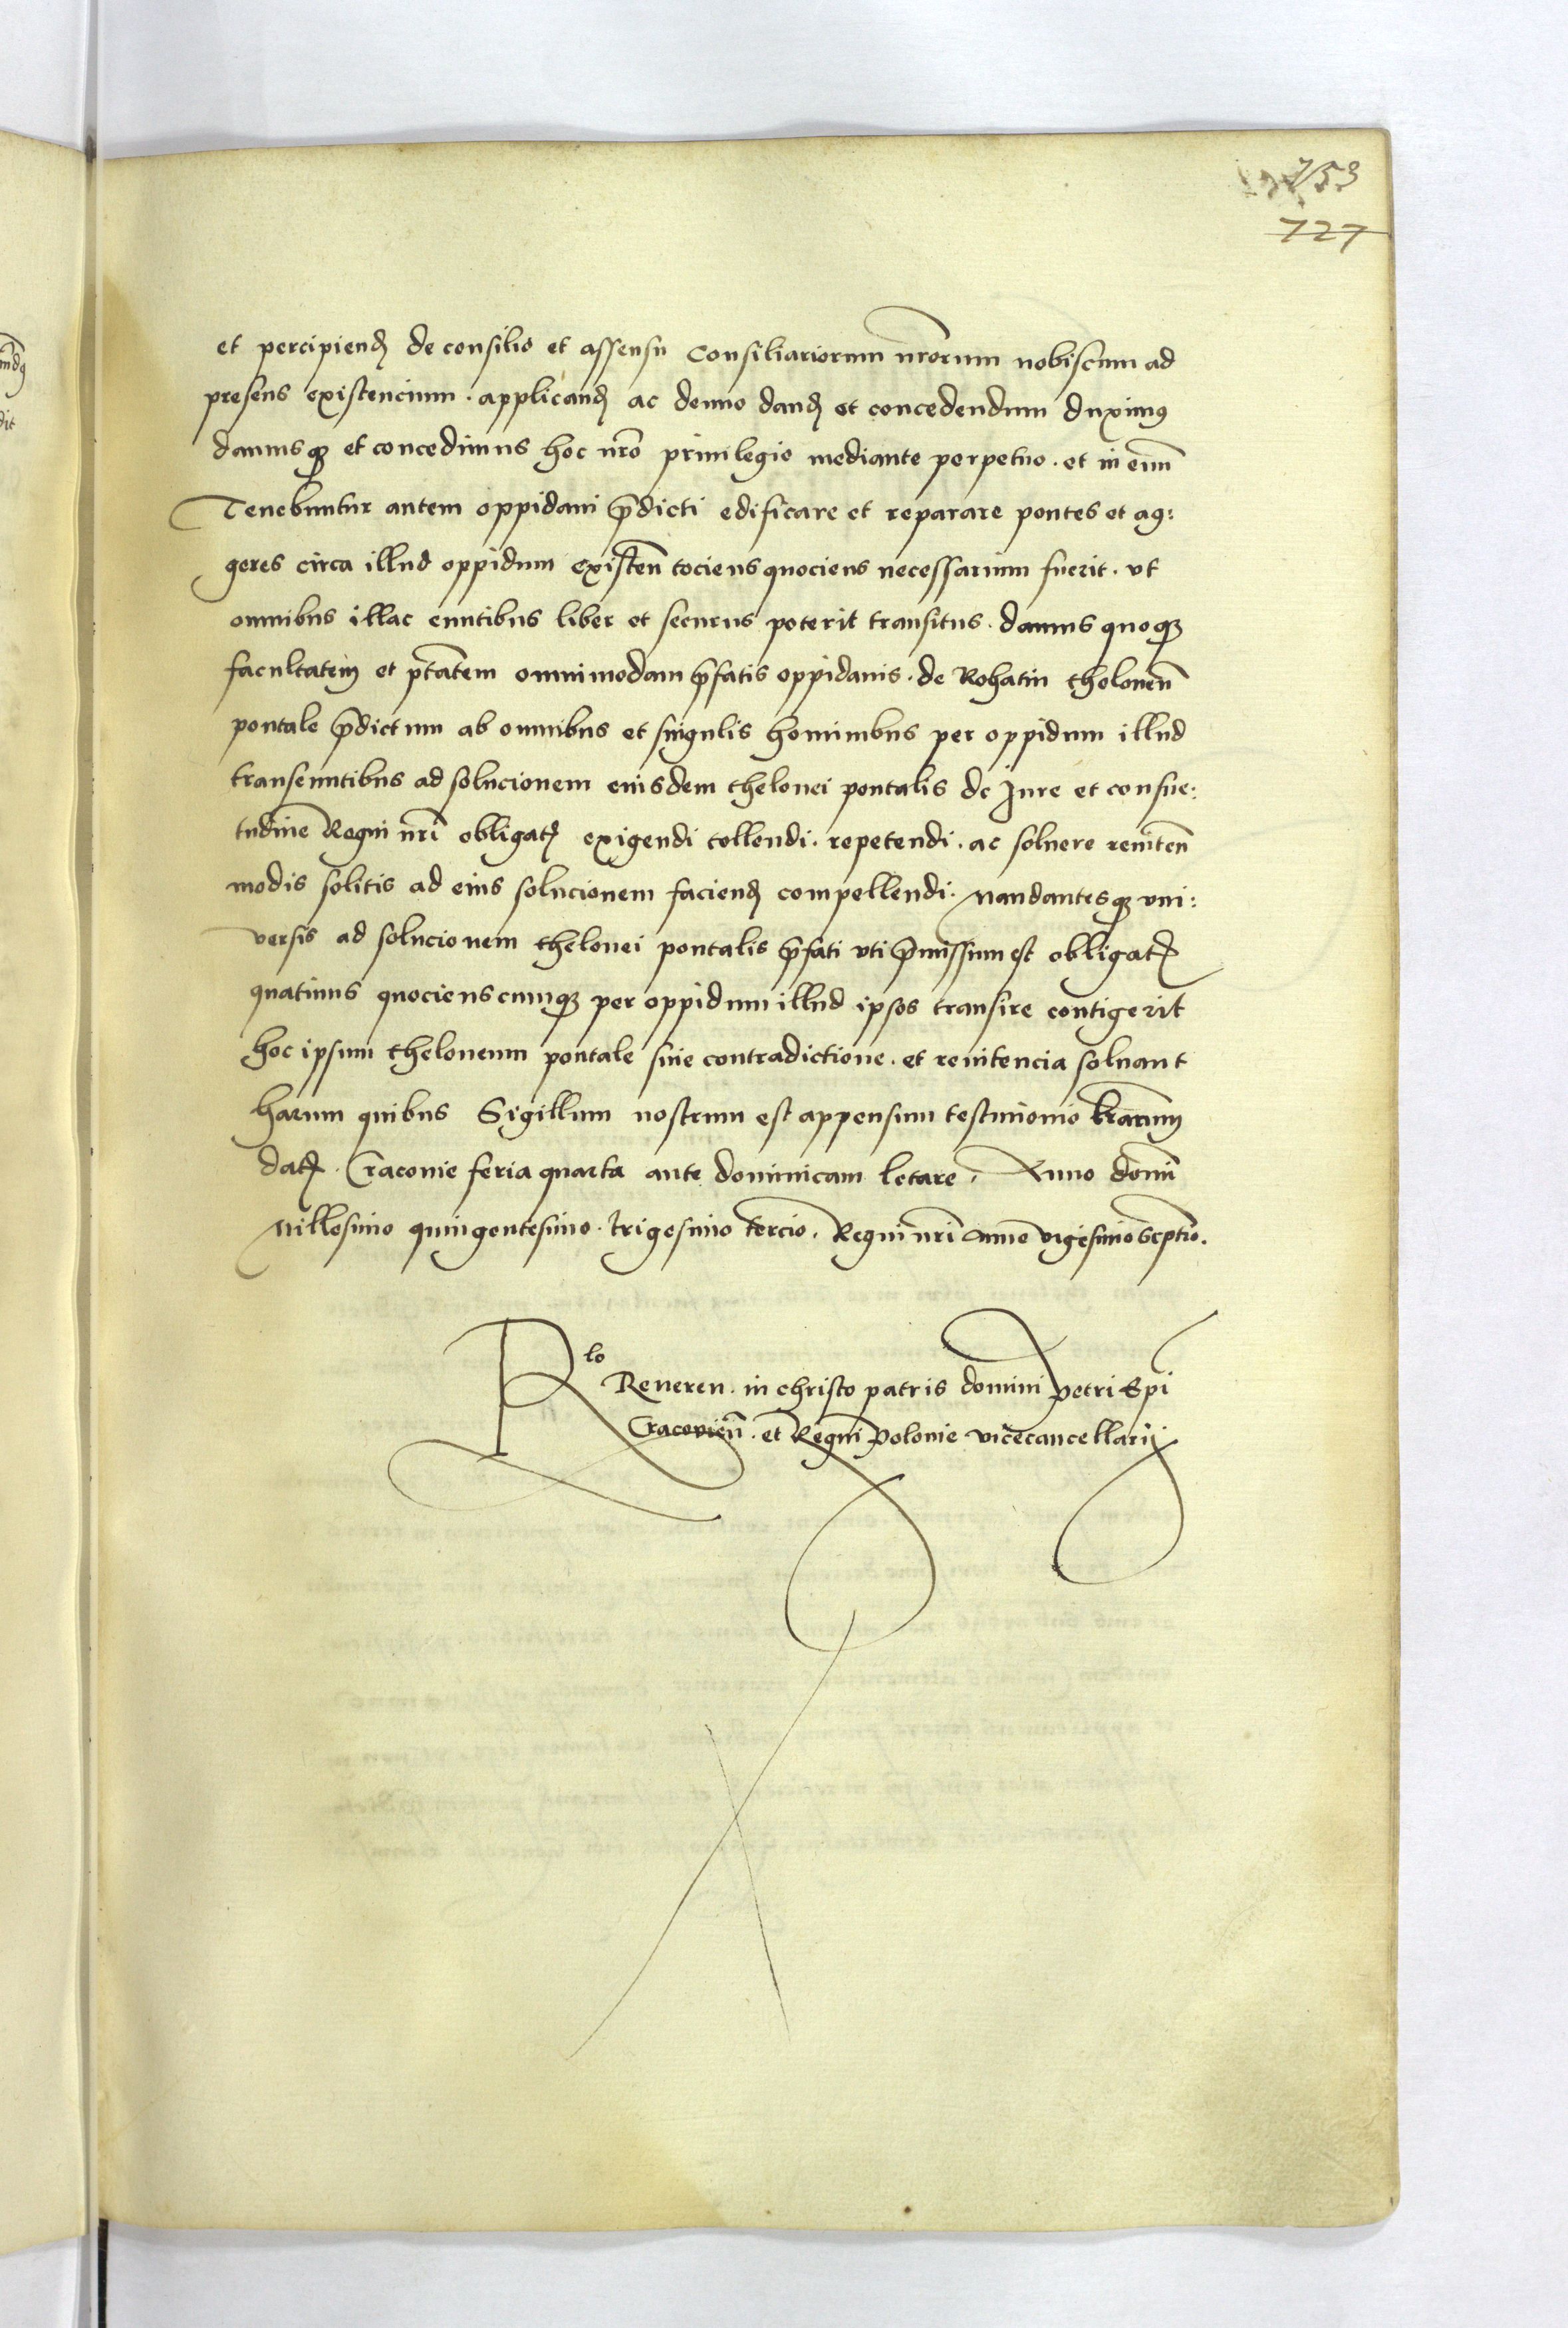 753
727
et percipiend de consilio et assensu Consiliariorum nrorum nobiscum ad
presens existencium. applicand ac denuo dand et concedendum duximus
damusq et concedimus hoc nro privilegio mediante perpetuo. et in evum
Tenebuntur autem oppidani pdicti edificare et reparare pontes et ag:
geres circa illud oppidum existen tociens quociens necessarium fuerit. vt
omnibus illac euntibus liber et securus poterit transitus. damus quoq
facultatem et ptatem omnimodam pfatis oppidanis. de Rohatin theloneu
pontale pdictum ab omnibus et singulis hominibus per oppidum illud
transeuntibus ad solucionem eiusdem thelonei pontalis de Iure et consue:
tudine Regni nri obligat exigendi tollendi. repetendi. ac soluere reniten
modis solitis ad eius solucionem faciend compellendi. Mandantesq vni:
versis ad solucionem thelonei pontalis pfati vti pmissum est obligat
quatinus quocienscumq per oppidum illud ipsos transire contigerit
hoc ipsum theloneum pontale sine contradictione. et renitencia soluant
harum quibus Sigillum nostrum est appensum testimonio lrarum
dat. Cracovie feria quarta ante dominicam letare. Anno domi
Millesimo quingentesimo. trigesimo tercio. Regni nri anno vigesimoseptio.
Rlo Reueren. in christo patris domini petri Epi
Cracovien. et Regni Polonie vicecancellarij